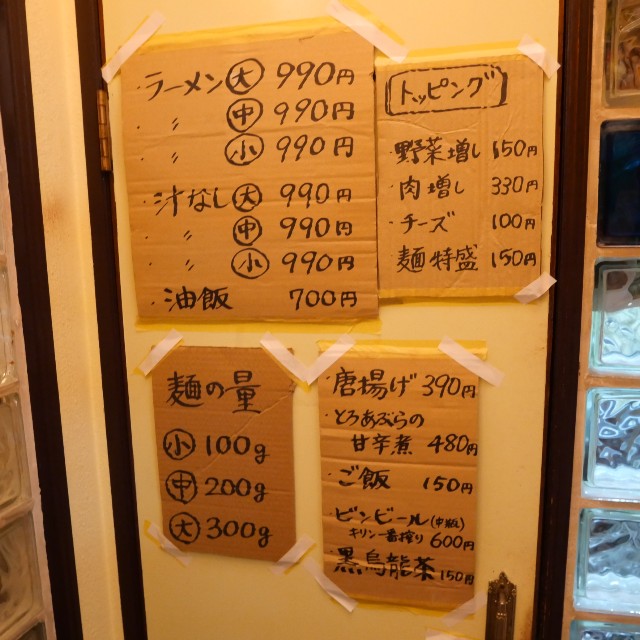 ・ラーメン 大 990円
・〃 中 990円
・〃 小 990円
・汁なし 大 990円
・〃 中 990円
・〃 小 990円
・油飯 700円
トッピング
・野菜増し 150円
・肉増し 330円
・チーズ 100円
・麺特盛 150円
麺の量
小 100g
中 200g
大 300g
・唐揚げ 390円
・とろあぶらの
甘辛煮 480円
・ご飯 150円
・ビンビール(中瓶)
キリン一番搾り 600円
・黒烏龍茶 150円